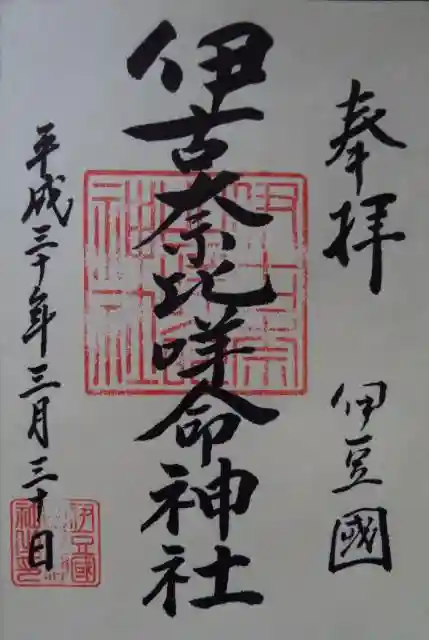 奉拝
伊豆國
伊古奈比咩命神社
平成三十年三月三十日